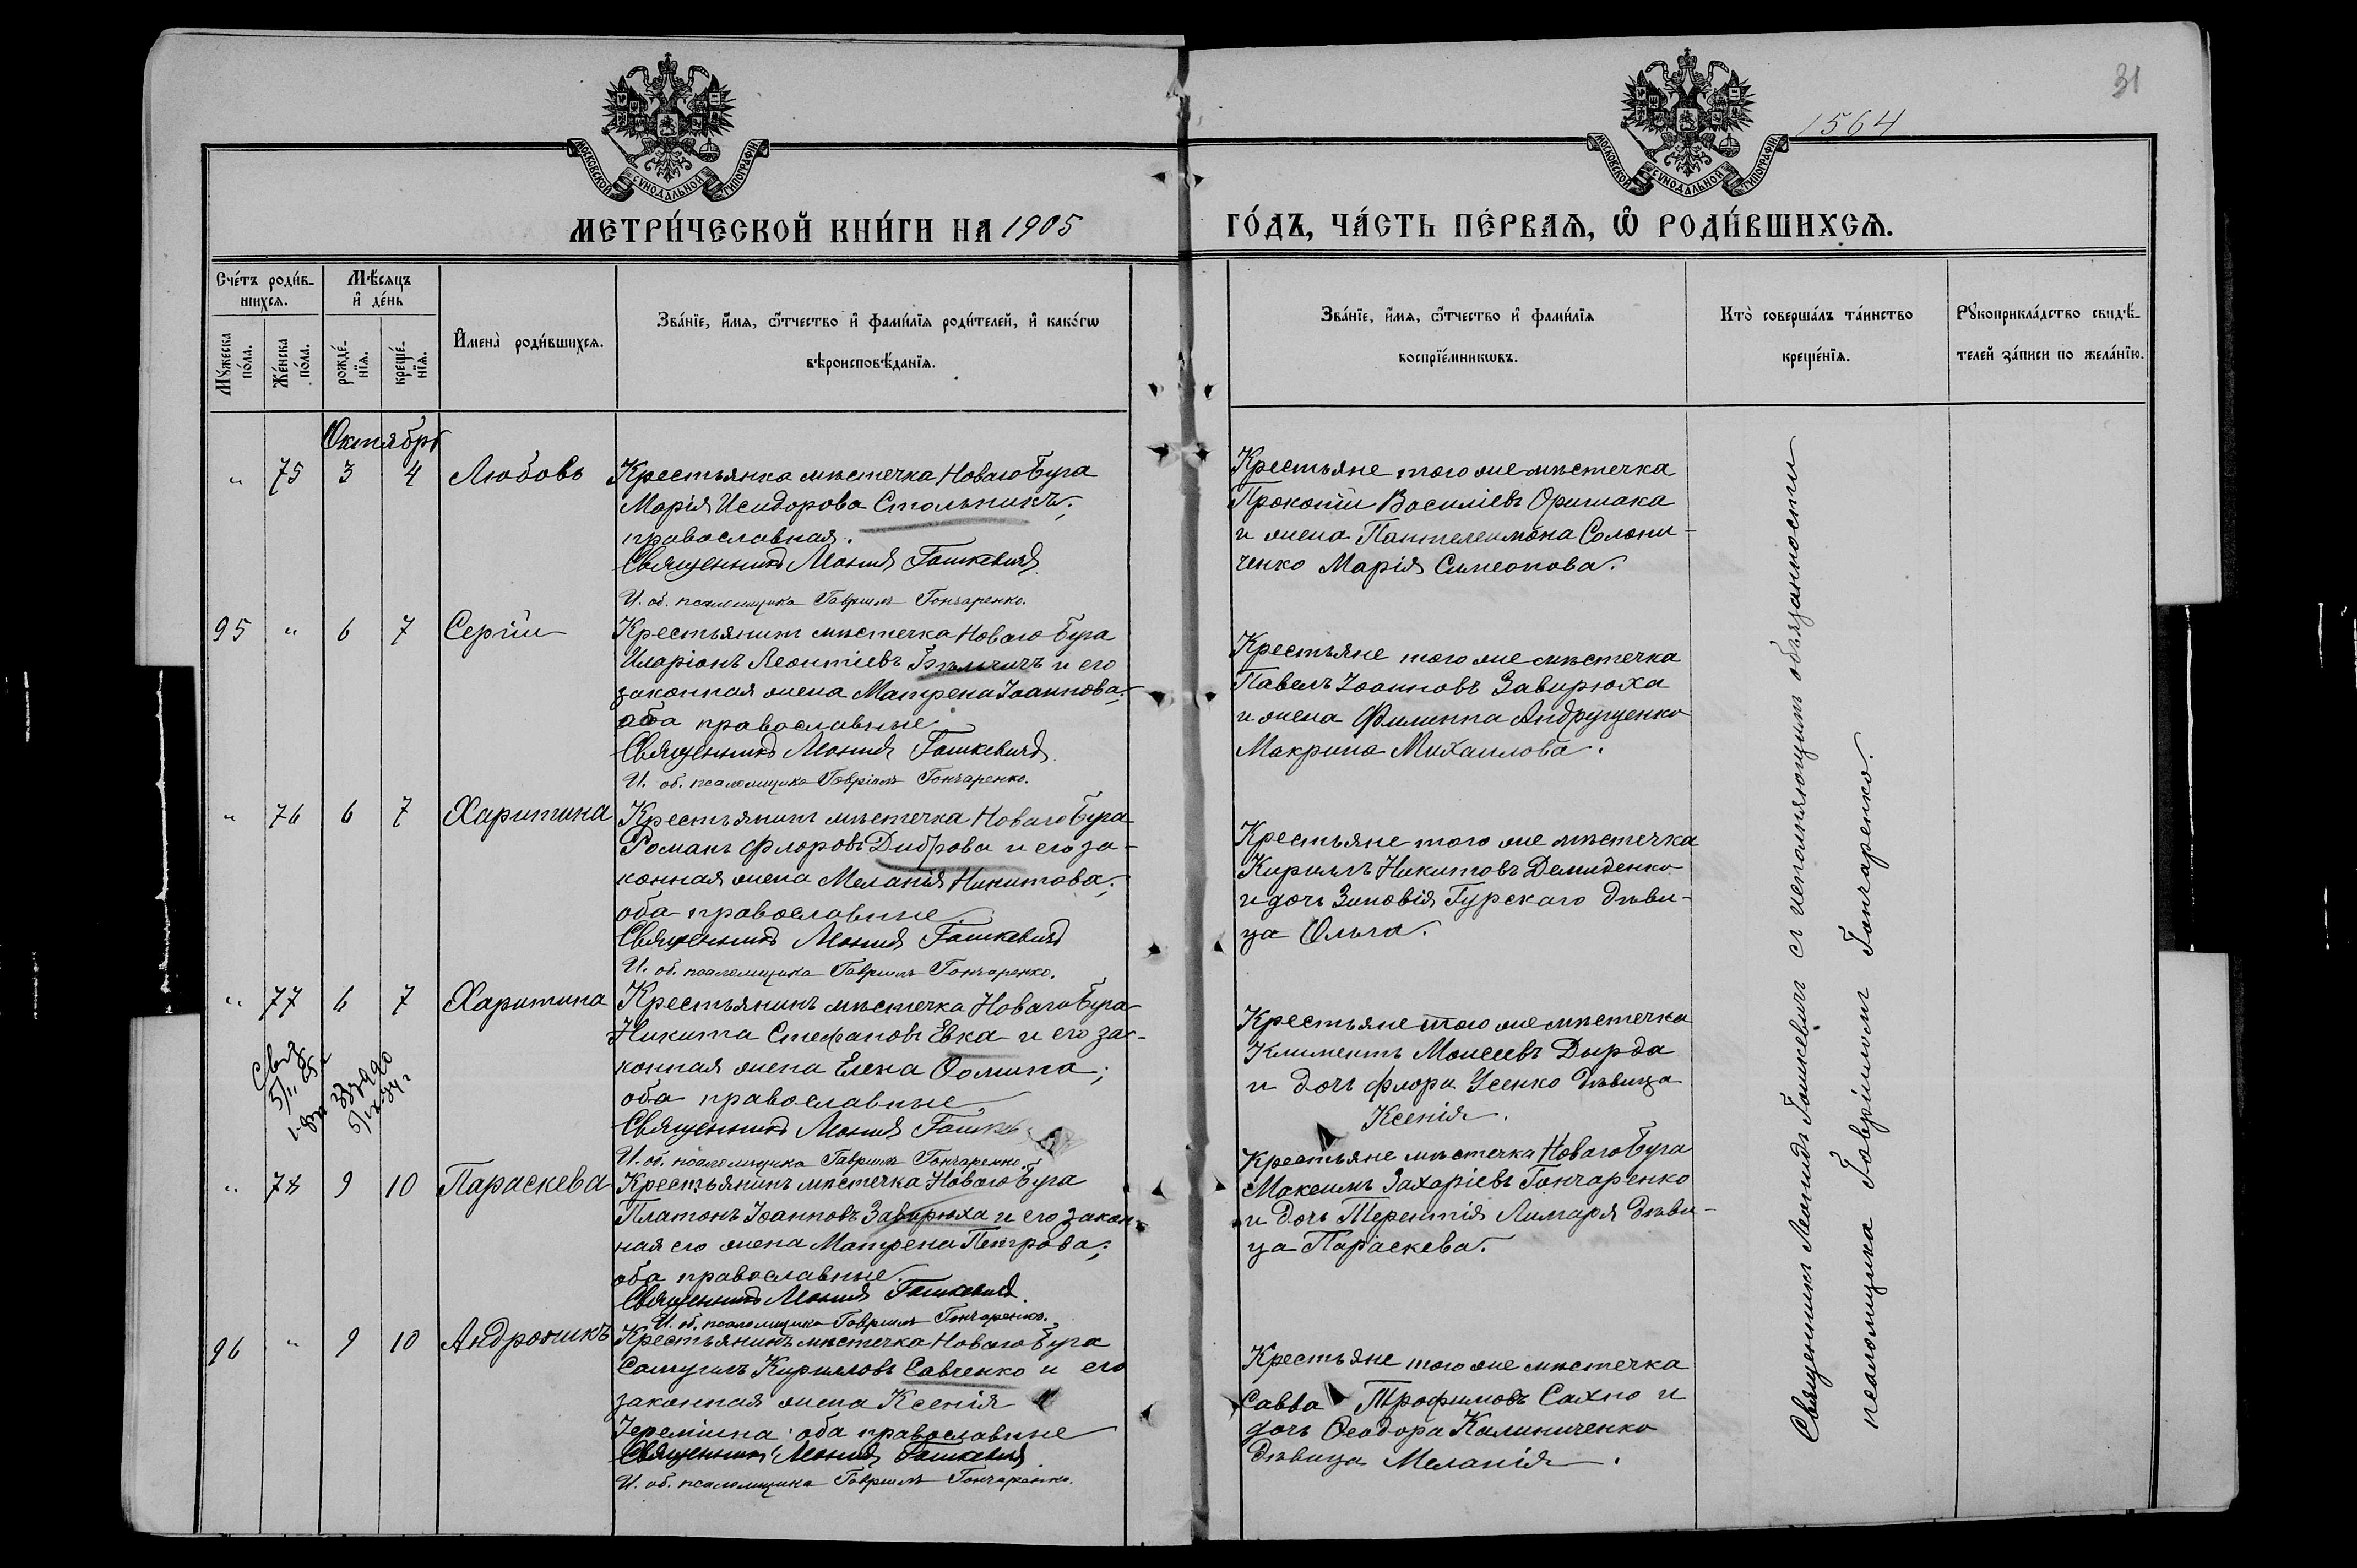 31
1564
МОСКОВСКОЙ СѴНОДАЛЬНОЙ ТИПОГРАФІИ
МОСКОВСКОЙ СѴНОДАЛЬНОЙ ТИПОГРАФІИ
МЕТРИ́ЧЕСКОЙ КНИ́ГИ НА 1905
ГО́ДЪ, ЧА́СТЬ ПЕ́РВАѦ, Ѽ РОДИ́ВШИХСѦ.
Сче́тъ роди́в-
шихсѧ.
Мꙋ́жеска по́ла.
Же́нска по́ла.
Мѣ́сѧцъ
и҆ де́нь
рожде́-
нїѧ.
креще́-
нїѧ.
И҆мена̀ роди́вшихсѧ.
Зва́нїе, и҆́мѧ, ѻ҆́тчество и҆ фами́лїѧ роди́телей, и҆ како́гѡ
вѣроисповѣ́данїѧ.
Зва́нїе, и҆́мѧ, ѻ҆́тчество и҆ фами́лїѧ
воспрїе́мникѡвъ.
Кто̀ соверша́лъ та́инство
креще́нїѧ.
Рꙋкоприкла́дство свидѣ́-
телей за́писи по жела́нїю.
Октябрь
" 75 3 4 Любовь
Крестьянка мѣстечка Новаго Буга
Марія Исидорова Стольникъ;
православная.
Священникъ Леонидъ Гашкевичъ
И. об. псаломщика Гавріилъ Гончаренко.
Крестьяне того же мѣстечка
Прокопій Василіевъ Оришака
и жена Пантелеимона Солони-
ченко Марія Симеонова.
95 " 6 7 Сергій
Крестьянинъ мѣстечка Новаго Буга
Иларіонъ Леонтіевъ и его
законная жена Матрена Іоаннова;
оба православные
Священникъ Леонидъ Гашкевичъ
И. об. псаломщика Гавріилъ Гончаренко.
Крестьяне того же мѣстечка
Павелъ Іоанновъ Завирюха
и жена Филиппа Андрущенко
Макрина Михаилова.
" 76 6 7 Харитина
Крестьянинъ мѣстечка Новаго Буга
Романъ Флоровъ Диброва и его за-
конная жена Меланія Никитова;
оба православные
Священникъ Леонидъ Гашкевичъ
И. об. псаломщика Гавріилъ Гончаренко.
Крестьяне того же мѣстечка
Кириллъ Никитовъ Демиденко
и дочь Зиновія Гурскаго дѣви-
ца Ольга.
" 77 6 7 Харитина
Крестьянинъ мѣстечка Новаго Буга
Никита Стефановъ Евка и его за-
конная жена Елена Ѳомина;
оба православные
Священникъ Леонидъ
И. об. псаломщика Гавріилъ Гончаренко.
Крестьяне того же мѣстечка
Климентъ Моисеевъ Дырда
и дочь Флора Усенко дѣвица
Ксенія.
" 78 9 10 Параскева
Крестьянинъ мѣстечка Новаго Буга
Платонъ Іоанновъ Завирюха и его закон-
ная его жена Матрена Петрова;
оба православные.
Священникъ Леонидъ Гашкевичъ.
И. об. псаломщика Гавріилъ Гончаренко.
Крестьяне мѣстечка Новаго Буга
Максимъ Захаріевъ Гончаренко
и дочь Терентія Лимаря дѣви-
ца Параскева.
96 " 9 10 Андроникъ
Крестьянинъ мѣстечка Новаго Буга
Самуилъ Кирилловъ Савченко и его
законная жена Ксенія
Іереміина; оба православные
Священникъ Леонидъ Гашкевичъ.
И. об. псаломщика Гавріилъ Гончаренко.
Крестьяне того же мѣстечка
Савва Трофимовъ Сахно и
дочь Ѳеодора Калиниченко
дѣвица Меланія.
Священникъ Леонидъ Гашкевичъ съ исполняющимъ обязанности
псаломщика Гавріиломъ Гончаренко.